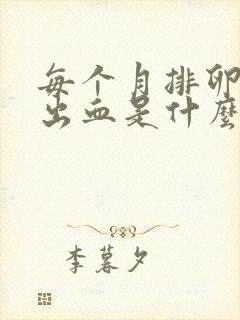 每个月排卵
出血是什麽
李暮夕